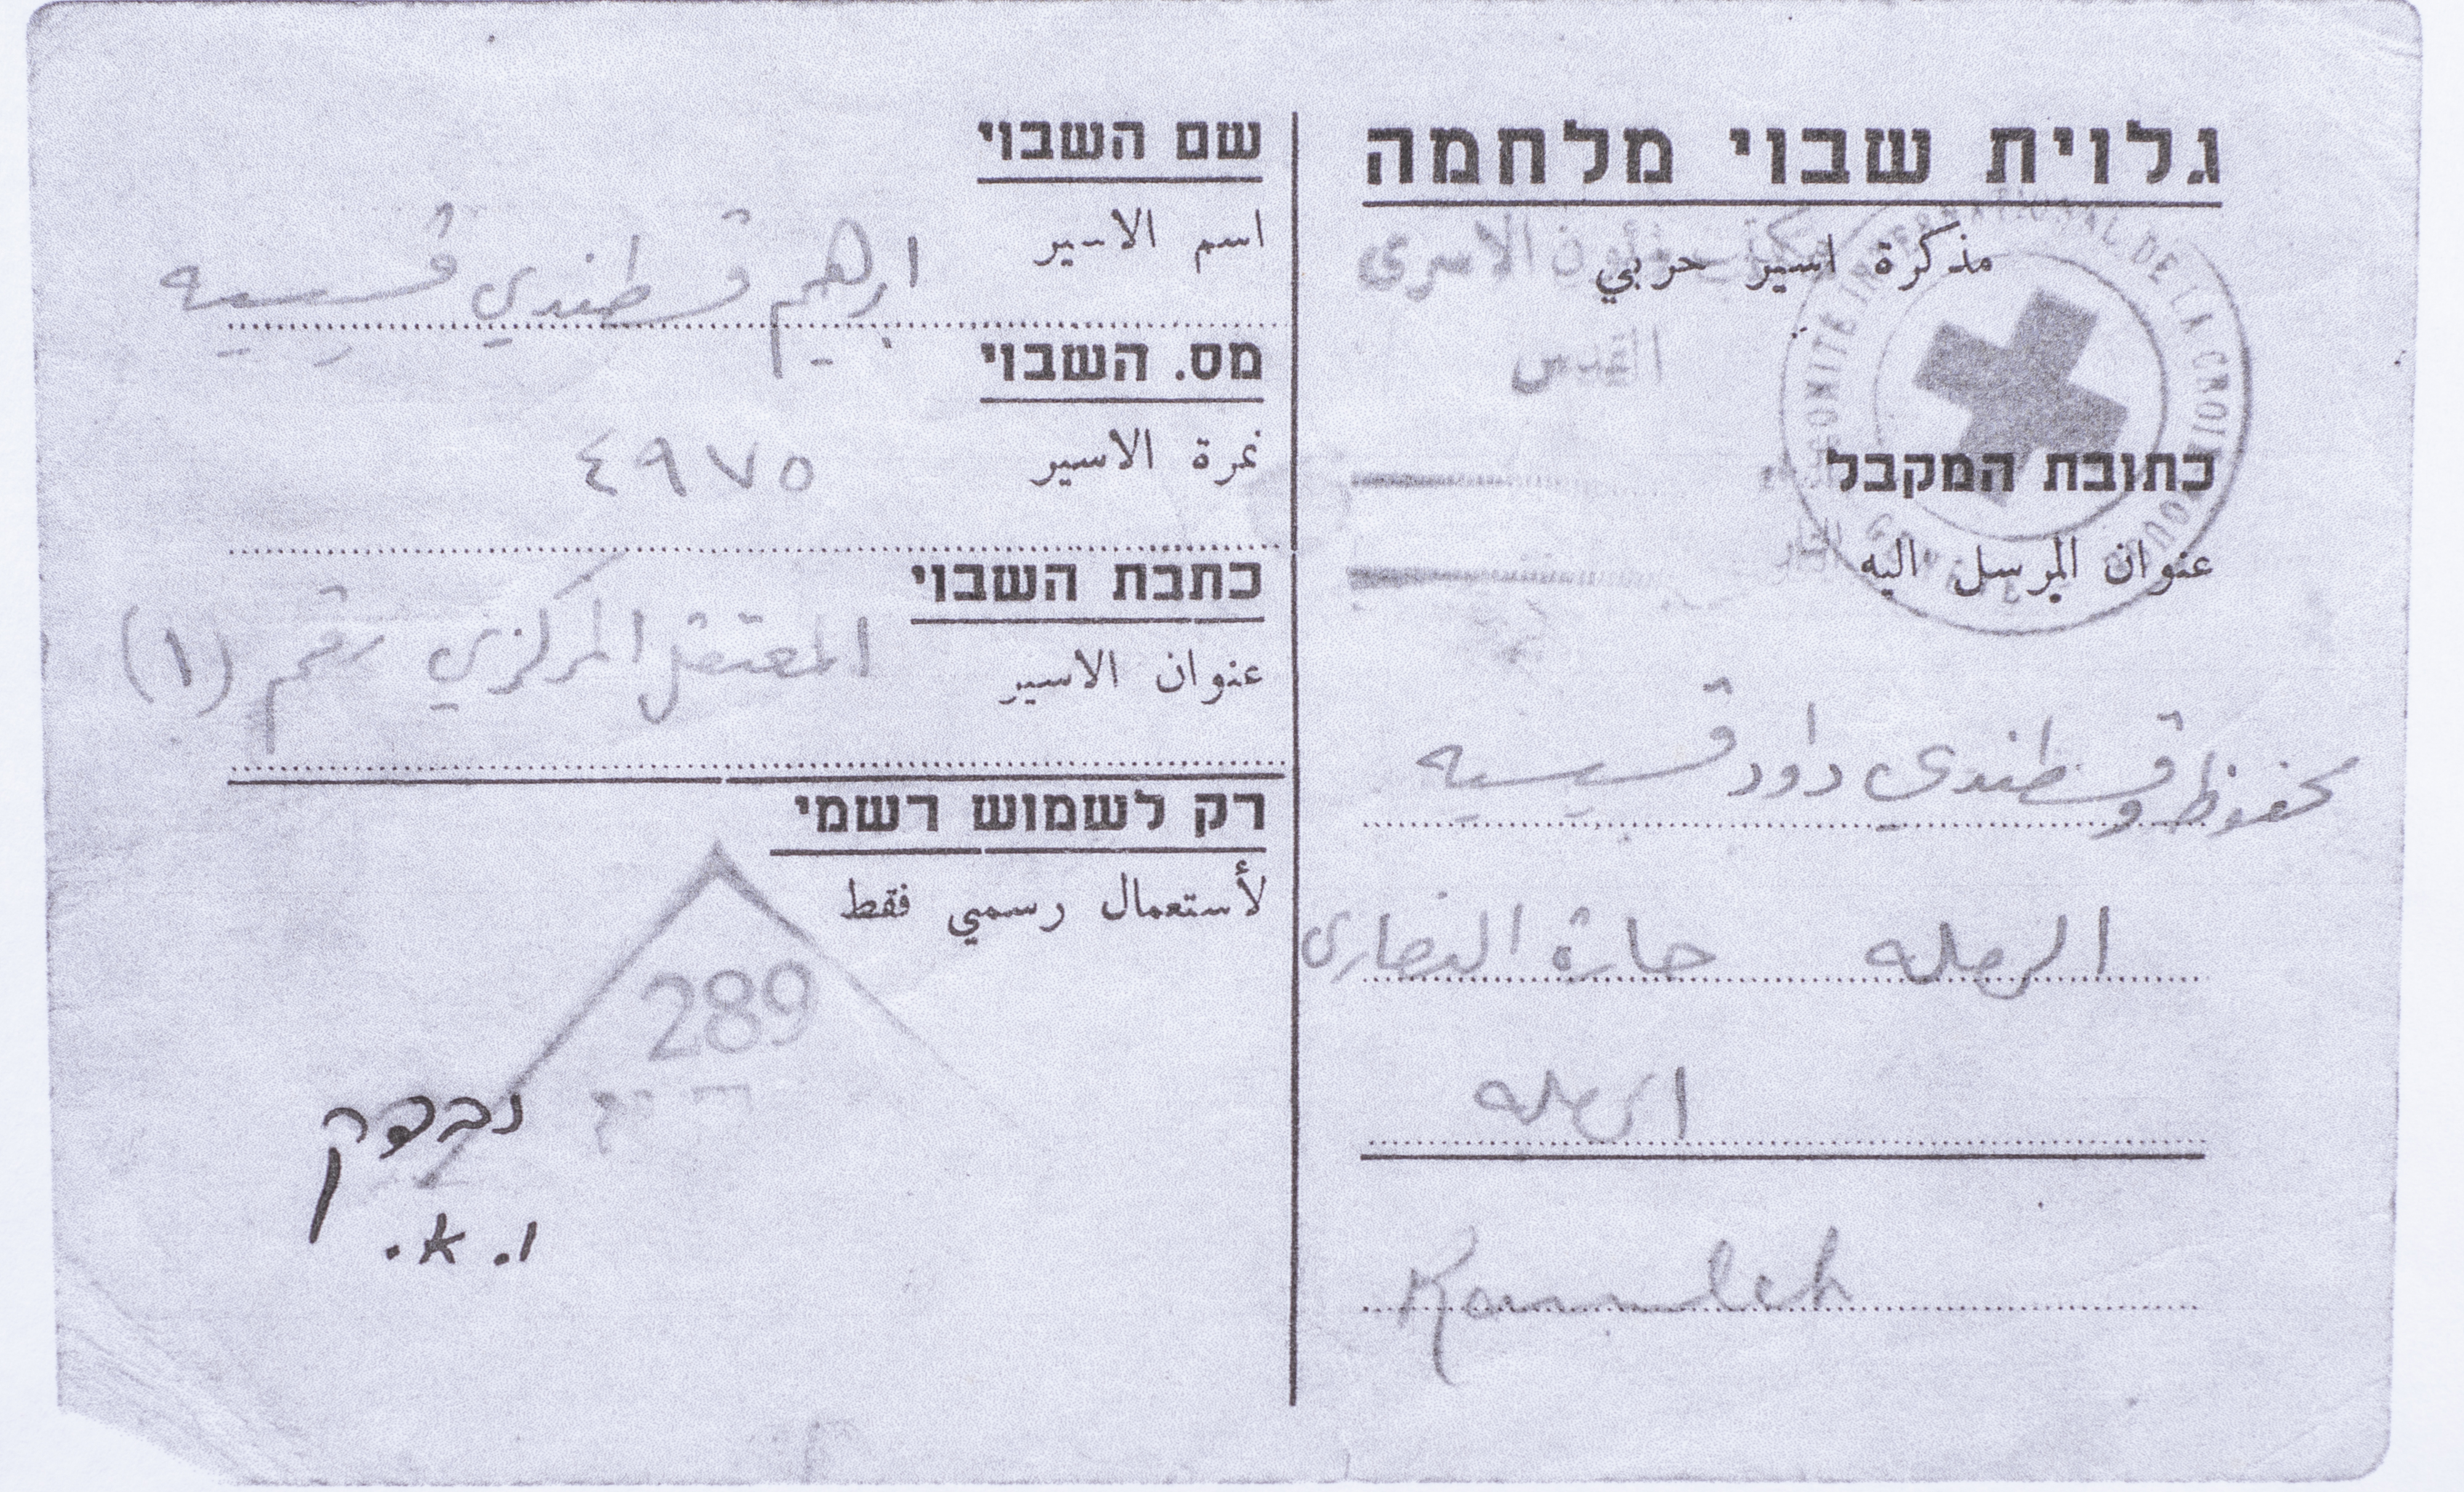 גלוית שבוי מלחמה
مذكرة اسير حربي
مكتب شؤون الاسرى
القدس
COMITÉ INTERNATIONAL DE LA CROIX ROUGE
כתובת המקבל
عنوان المرسل اليه
محفوظ وقسطندي داود قسيسيه
الرمله حارة النصارى
الرمله
Ramleh
שם השבוי
اسم الاسير
ابرهيم قسطندي قسيسيه
מס. השבוי
نمرة الاسير
٤٩٧٥
כתבת השבוי
عنوان الاسير
المعتقل المركزي رقم (١)
רק לשמוש רשמי
لأستعمال رسمي فقط
289
נבדק
ו. א.